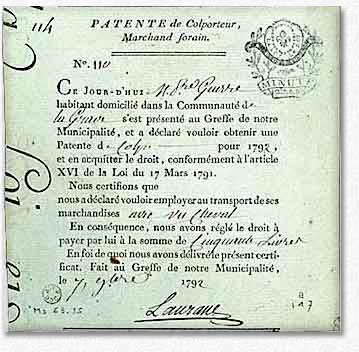 114
PATENTE de Colporteur,
Marchand forain.
N°. 110
CE JOUR-D'HUI
habitant domicilié dans la Communauté de
la Grave s'est présenté au Greffe de notre
Municipalité, et a déclaré vouloir obtenir une
Patente de Colpr pour 1792,
et en acquitter le droit, conformément à l'article
XVI de la Loi du 17 Mars 1791.
Nous certifions que
nous a déclaré vouloir employer au transport de ses
marchandises avec un cheval
En conséquence, nous avons réglé le droit à
payer par lui à la somme de Cinquante Livres
En foi de quoi nous avons délivré le présent certi-
ficat. Fait au Greffe de notre Municipalité,
le 7 1792
MINUTE